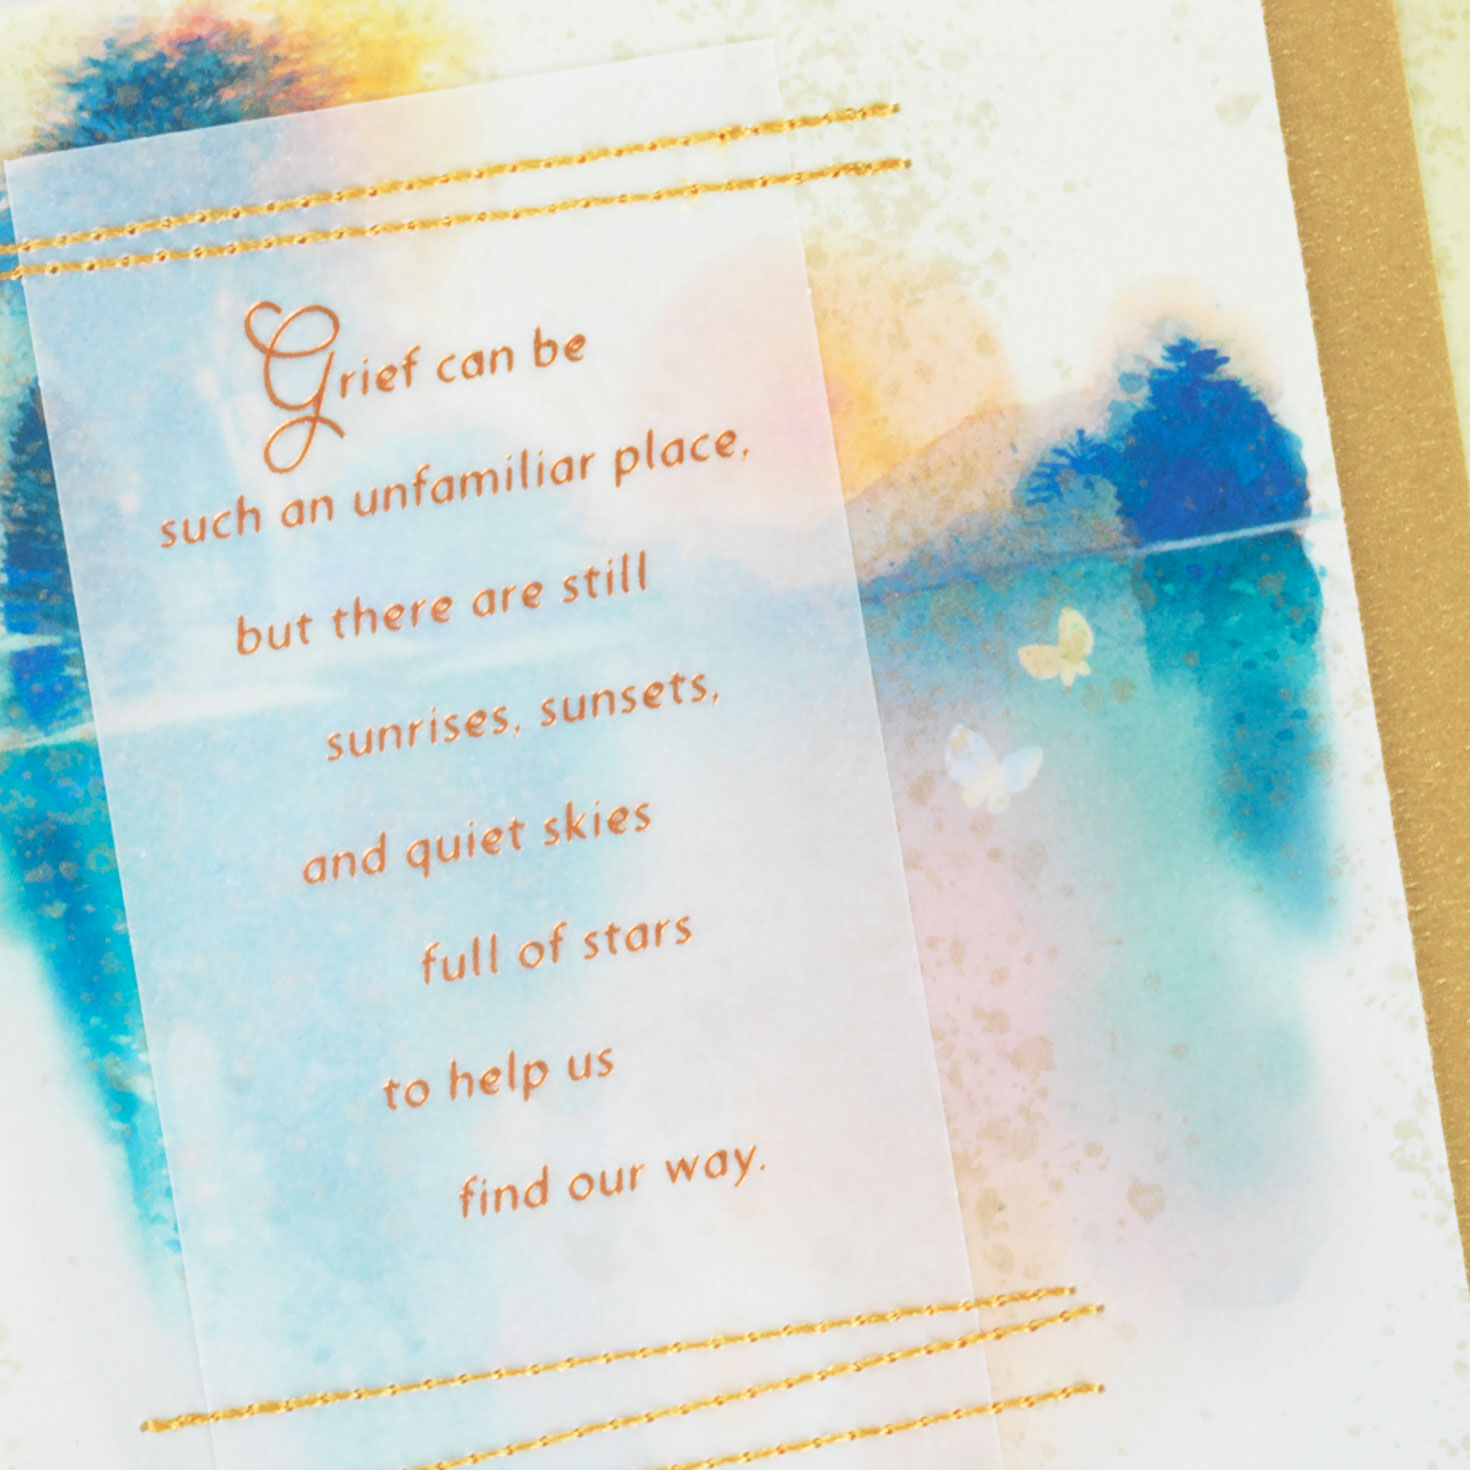 Grief can be
such an unfamiliar place,
but there are still
sunrises, sunsets,
and quiet skies
full of stars
to help us
find our way.